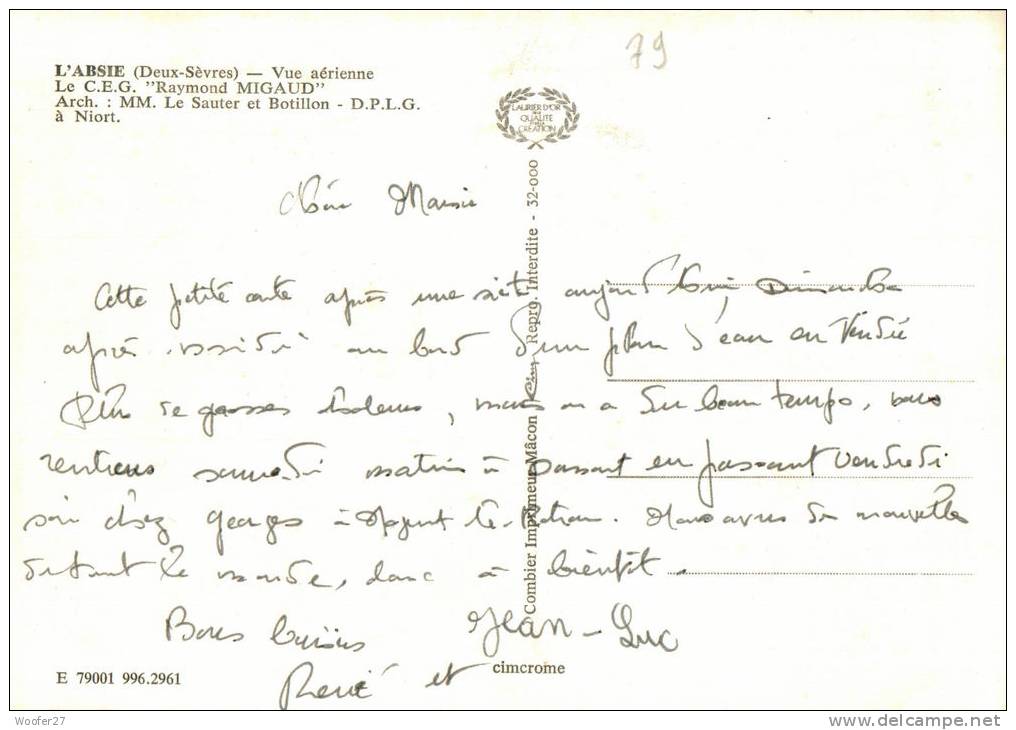 79
L'ABSIE (Deux-Sèvres) — Vue aérienne
Le C.E.G. "Raymond MIGAUD"
Arch. : MM. Le Sauter et Botillon - D.P.L.G.
à Niort.
LAURIER D'OR
QUALITÉ
CRÉATION
Combier Imprimeur Mâcon Reprg. Interdite - 32-000
Cette petite carte après une aujourd'hui, Dimanche
après-midi au bord d'un plan d'eau en Vendée
mais on a du beau temps, nous
rentrons samedi matin à en passant vendredi
soir chez Georges à Nogent le Rotrou. Nous avons de nouvelles
tout le monde, donc à bientôt.
Bons baisers Jean-Luc
René et
cimcrome
E 79001 996.2961
Woofer27
www.delcampe.net